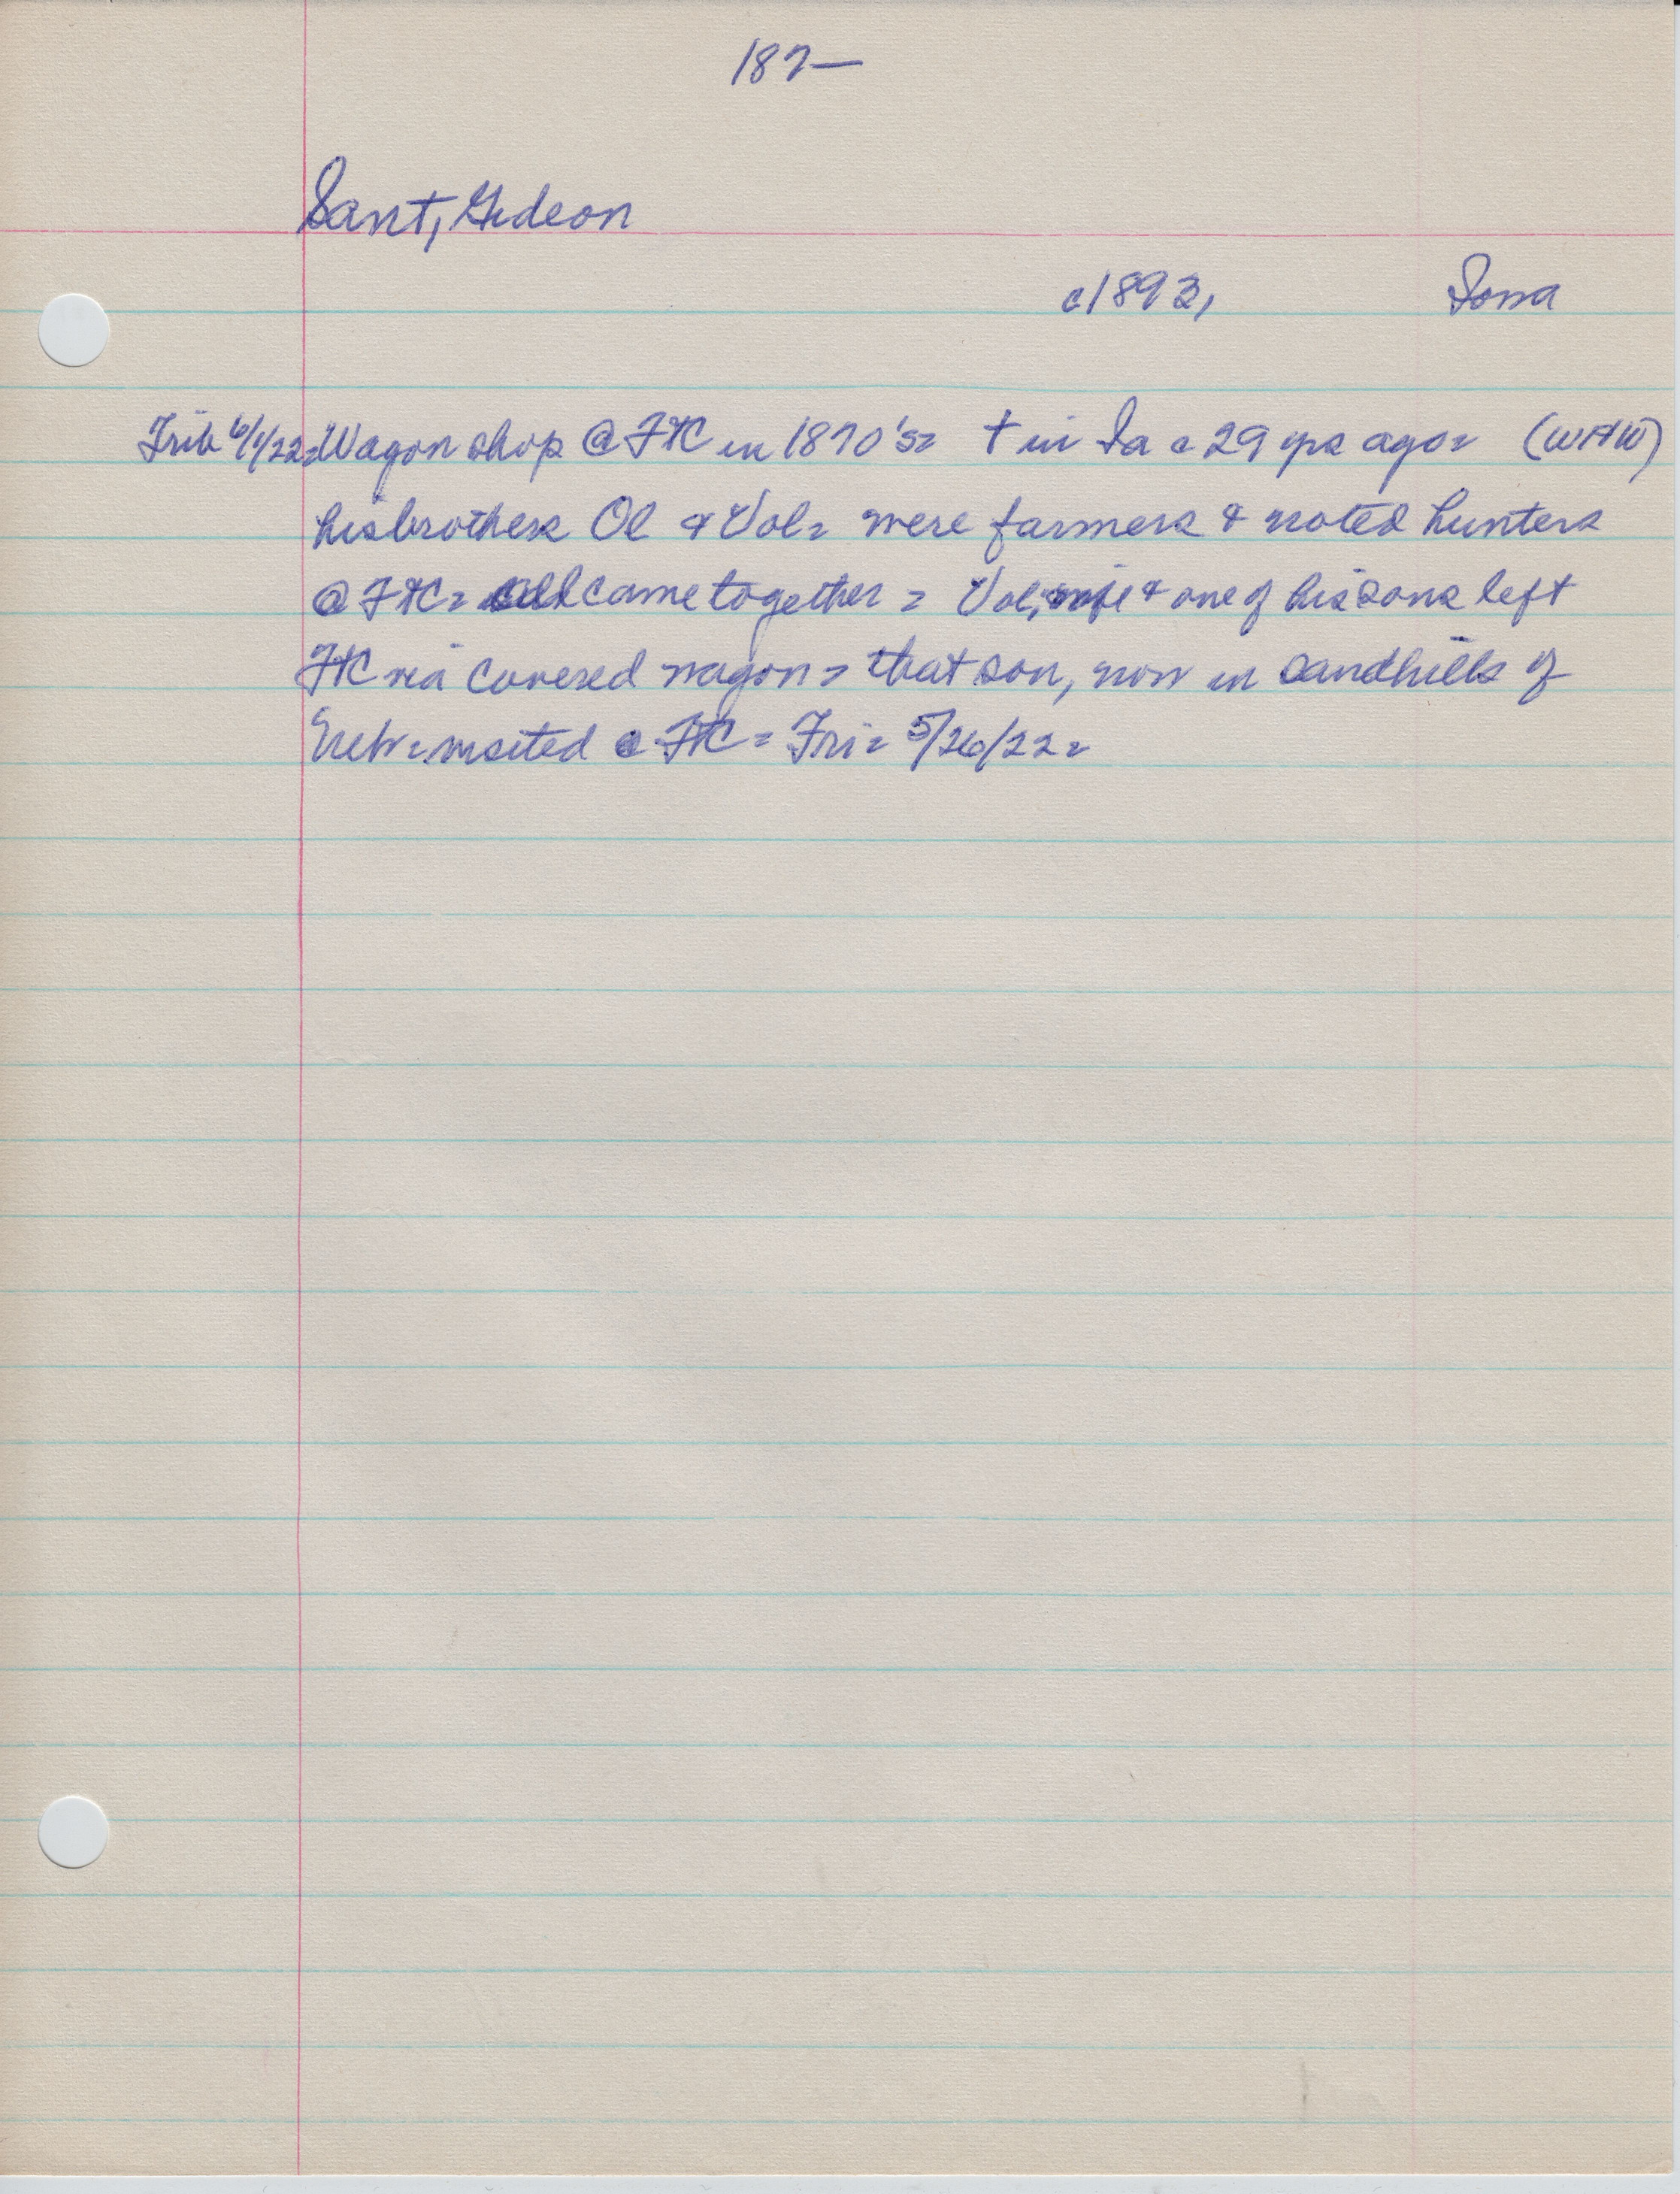 187–
Sant, Gideon
c1893, Iowa
Trib 6/1/22= Wagon shop @ FtC in 1870's= † in Ia c 29 yrs ago= (WHW)
his brothers Ol & Vol= were farmers & noted hunters
@ FtC= all came together = Vol, wife & one of his sons left
FtC via covered wagon = that son, now in sandhills of
Neb= visited @ FtC = Fri= 5/26/22=